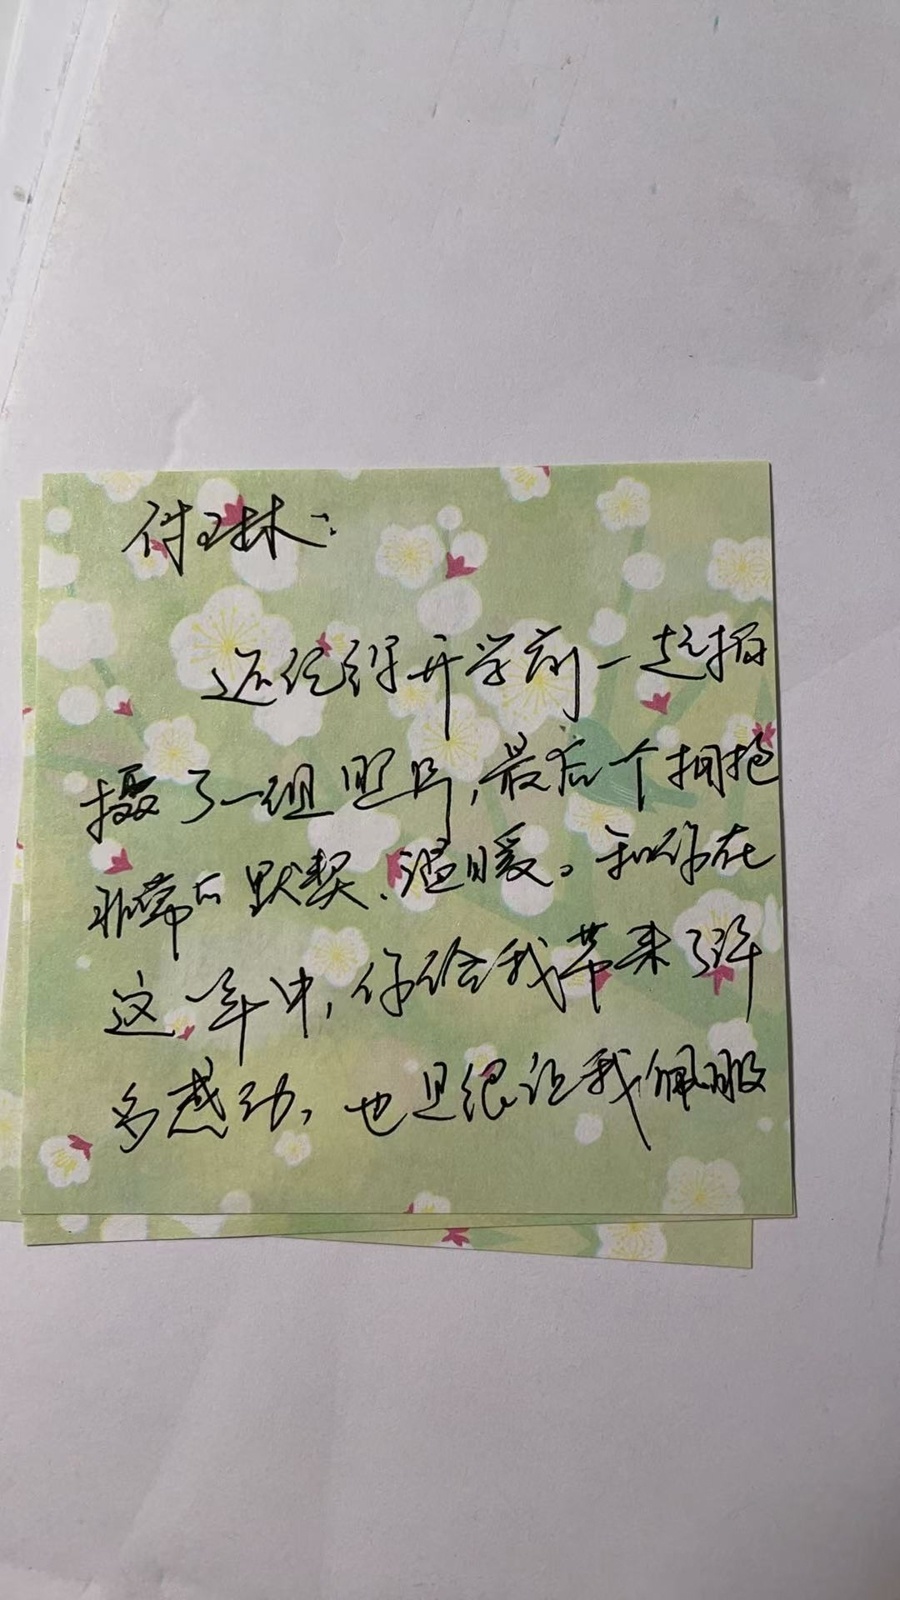 付玉林：
还记得开学前一起拍
摄了一组照片，最后个拥抱
非常的默契、温暖。和你在
这一年中，你给我带来了许
多感动，也是很让我佩服